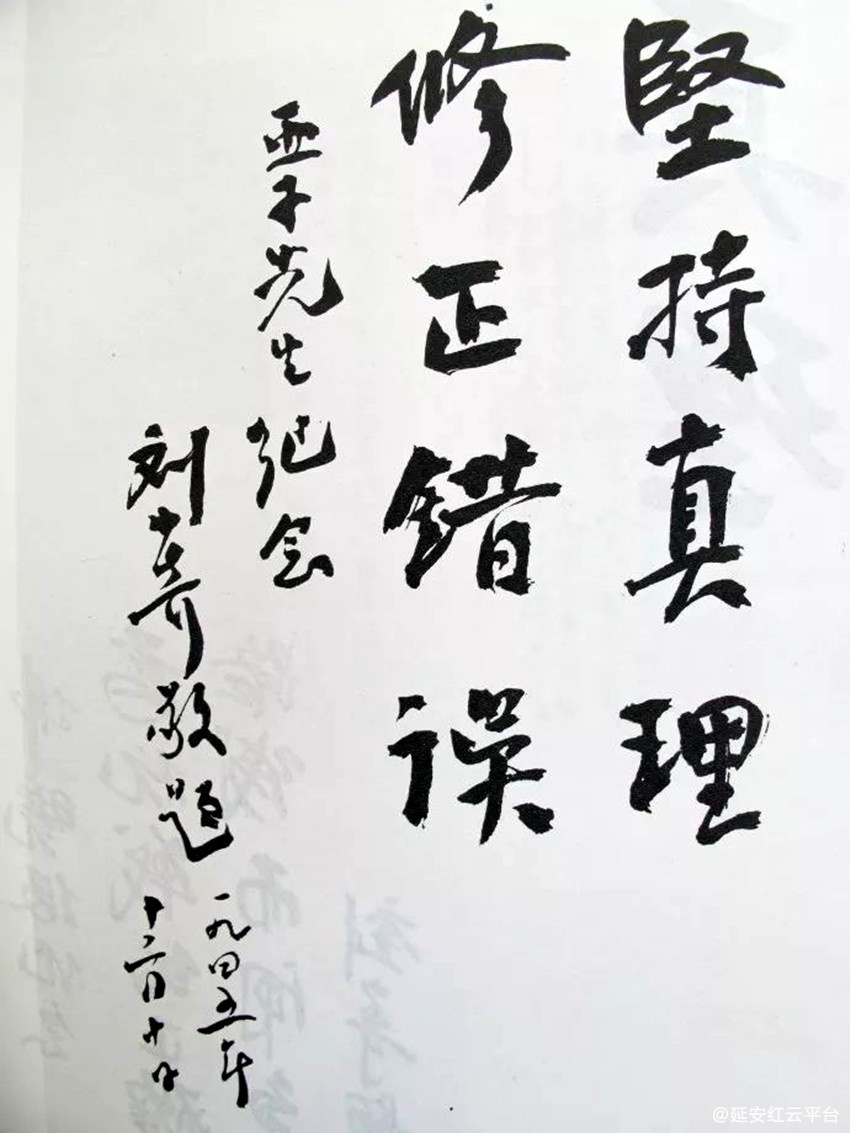 堅持真理
修正錯誤
亚子先生纪念
刘少奇敬题
一九四五年
十二月十日
@延安红云平台